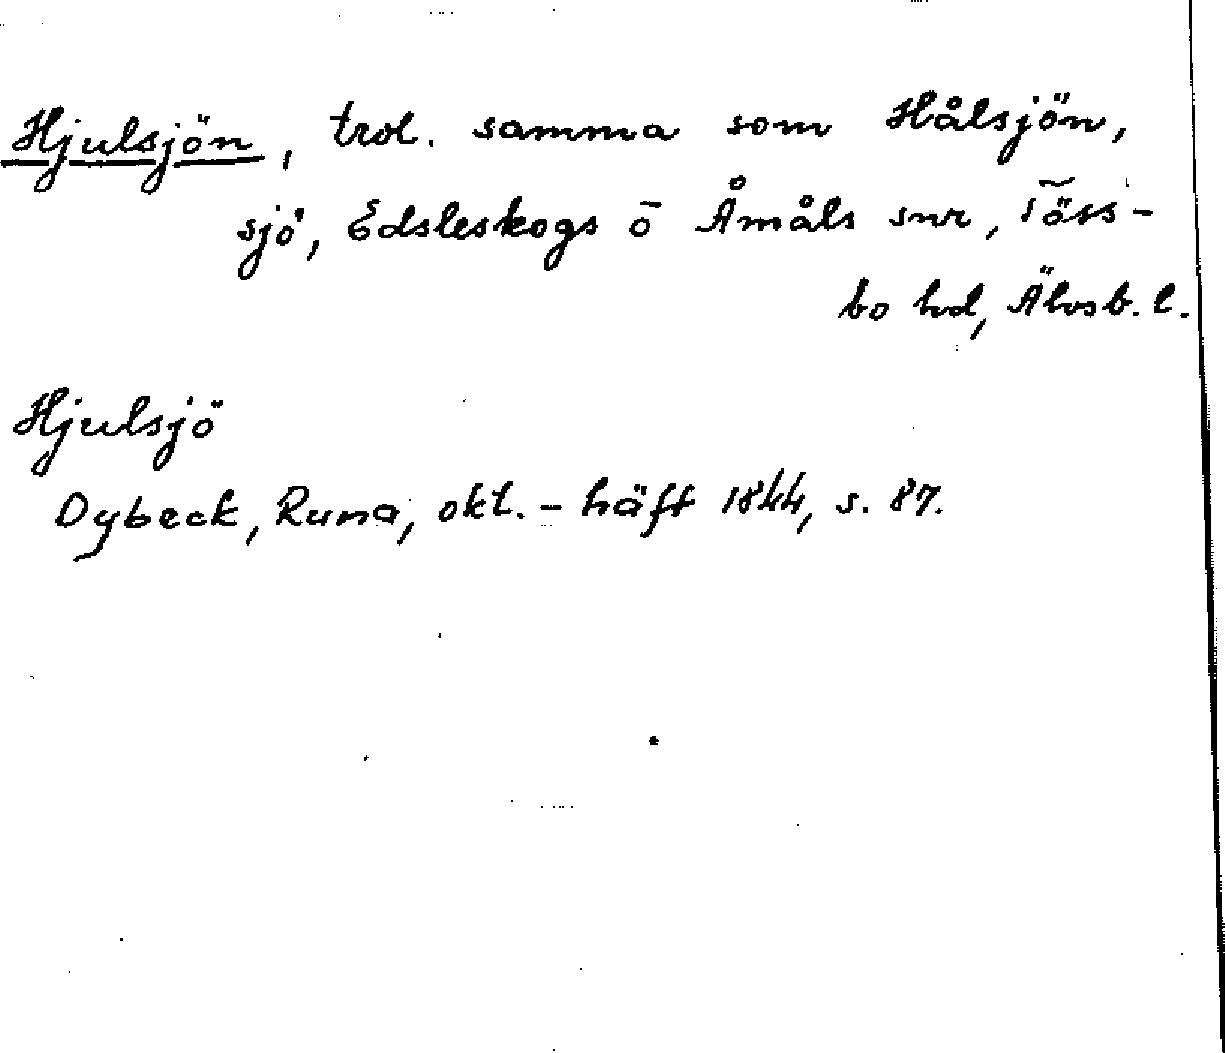 Hjulsjön, trol. samma som Hålsjön,
sjö, Edsleskogs o Åmåls snr, Töss-
bo hd, Älvsb. l.
Hjulsjö
Dybeck, Runa, okt. - häft 1844, s. 87.